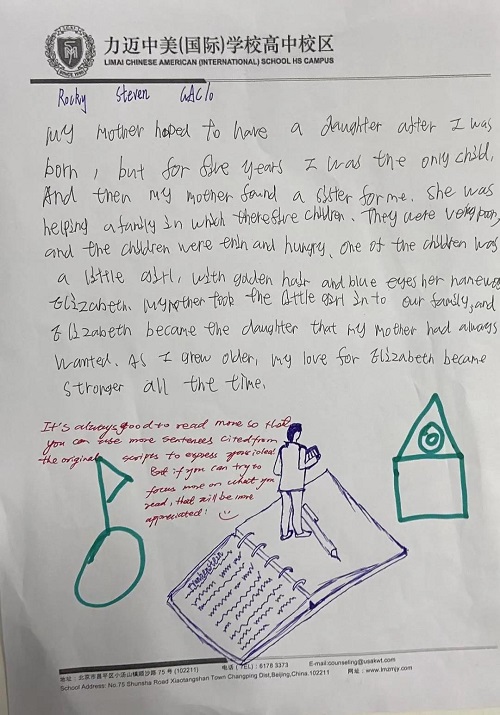 LIMAI
力迈中美(国际)学校高中校区
LIMAI CHINESE AMERICAN (INTERNATIONAL) SCHOOL HS CAMPUS
Rocky Steven GACIO
My mother hoped to have a daughter after I was
born, but for five years I was the only child,
And then my mother found a sister for me. She was
helping a family in which there five children. They were very poor,
and the children were thin and hungry. One of the children was
a little girl, with golden hair and blue eyes her name was
Elizabeth. My mother took the little girl in to our family, and
Elizabeth became the daughter that my mother had always
wanted. As I grew older, my love for Elizabeth became
stronger all the time.
It's always good to read more so that
you can use more sentences cited from
the original scripts to express your ideas.
But if you can try to
focus more on what you
read, that will be more
appreciated!
地址:北京市昌平区小汤山镇顺沙路 75 号 (102211) 电话 (TEL): 6178 3373 E-mail:counseling@usakwt.com
School Address: No.75 Shunsha Road Xiaotangshan Town Changping Dist,Beijing,China.102211 网址: www.lmzmjy.com